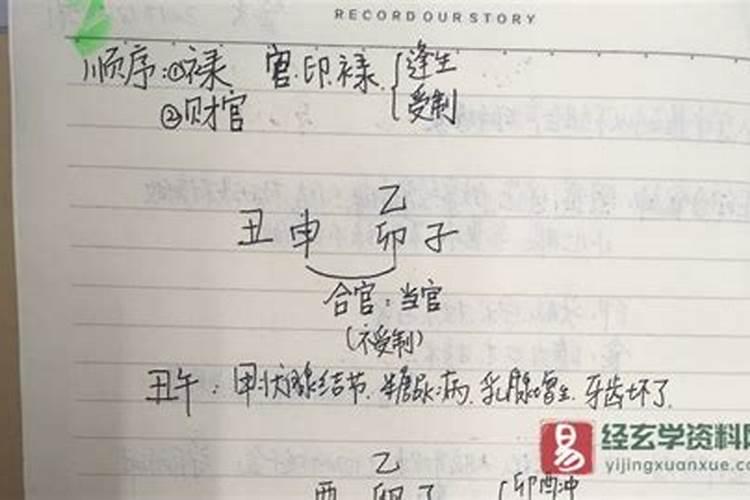 RECORD OUR STORY
顺序:①禄 官.印.禄 { 逢生
②财官 受制
乙
丑申 卯子
合官:当官
(不受制)
丑午:甲状腺结节.糖尿病.乳腺增生.牙齿坏了.
乙
酉 卯子 { 卯酉冲
易 经玄学资料网
yijingxuanxue.com